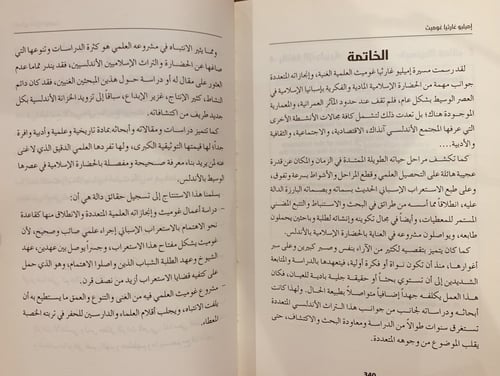 إميليو غارثيا غوميث
الخاتمة
لقد رسمت مسيرة إميليو غارثيا غوميث العلمية الغنية، وإنجازاته المتعددة
جوانب مهمة من الحضارة الإسلامية المادية والفكرية بإسبانيا الإسلامية في
العصر الوسيط بشكل عام، فلم تقف عند حدود المآثر العمرانية، والمعمارية
الموجودة هناك، بل تعدت ذلك لتشمل كافة مجالات الأنشطة الأخرى
التي عرفها المجتمع الأندلسي آنذاك، الاقتصادية، والاجتماعية، والثقافية
والأدبية....
كما تكشف مراحل حياته الطويلة الممتدة في الزمان والمكان عن قدرة
عجيبة هائلة على التحصيل العلمي وقطع المراحل والأشواط بسرعة وتفوق،
وعلى طبع الاستعراب الإسباني الحديث بسماته وبصماته البارزة الدالة
عليه، انطلاقاً مما أسسه من طرائق في البحث والاستنباط والتتبع المضني
المستمر للمعطيات، وأيضاً في مجال تكوينه وإنشائه لطلبة وباحثين يحملون
طابعه، ويواصلون مشروعه في العناية بالحضارة الإسلامية بالأندلس.
كما كان يتميز بتقصيه لكثير من الآراء بنفس وصبر كبيرين وعلى سبر
أغوارها، منذ أن تكون نواة أو فكرة أولية، فيتعهدها بالدراسة والمتابعة
الشديدين إلى أن تستوي بحثاً أو حقيقة جلية بادية للعيان، فكان
هذا العمل يكلفه جهداً إضافياً متواصلاً بطبيعة الحال. ولهذا كانت
أبحاثه ودراساته لجانب من جوانب هذا التراث الأندلسي المتعددة
تستغرق سنوات طوالاً من الدراسة ومعاودة البحث والاكتشاف، حتى
يقلب الموضوع من وجوهه المتعددة.
340
ومما يثير الانتباه في مشروعه العلمي هو كثرة الدراسات وتنوعها التي
صاغها عن الحضارة والتراث الإسلاميين الأندلسيين، فقد يندر تماما عدم
العثور على مقال له أو دراسة حول هذين المبحثين الغنيين، فقد كان دائم
النشاط، كثير الإنتاج، غزير الإبداع، سباقا إلى تزويد الخزانة الأندلسية بكل
جديد طريف من اكتشافاته.
كما تتميز دراسات ومقالاته وأبحاثه بمادة تاريخية وعلمية وأدبية وافرة
جداً لها قيمتها التوثيقية الكبرى، ولها تفردها العلمي الدقيق الذي لا غنى
عنه لمن يريد بناء معرفة صحيحة ومفصلة بالحضارة الإسلامية في عصرها
الوسيط بالأندلس.
يسلمنا هذا الاستنتاج إلى تسجيل حقائق دالة هي أن:
- دراسة أعمال غوميث وإنجازاته العلمية المتعددة والانطلاق منها كقاعدة
نحو الاهتمام بالاستعراب الإسباني إجراء علمي صائب وصحيح، لأن
غوميث يشكل مفتاح هذا الاستعراب، وجسرا يوصل بين عهدين، عهد
الشيوخ وعهد الطلبة الشباب الذين واصلوا الاهتمام، وهو الذي حمل
على كتفيه قضايا الاستعراب أزيد من نصف قرن.
- مشروع غوميث العلمي فيه من الغنى والتنوع والعمق ما يستطيع به أن
يلفت الانتباه، ويجلب أقلام العلماء والدارسين للحفر في تربته الخصبة
المعطاء.